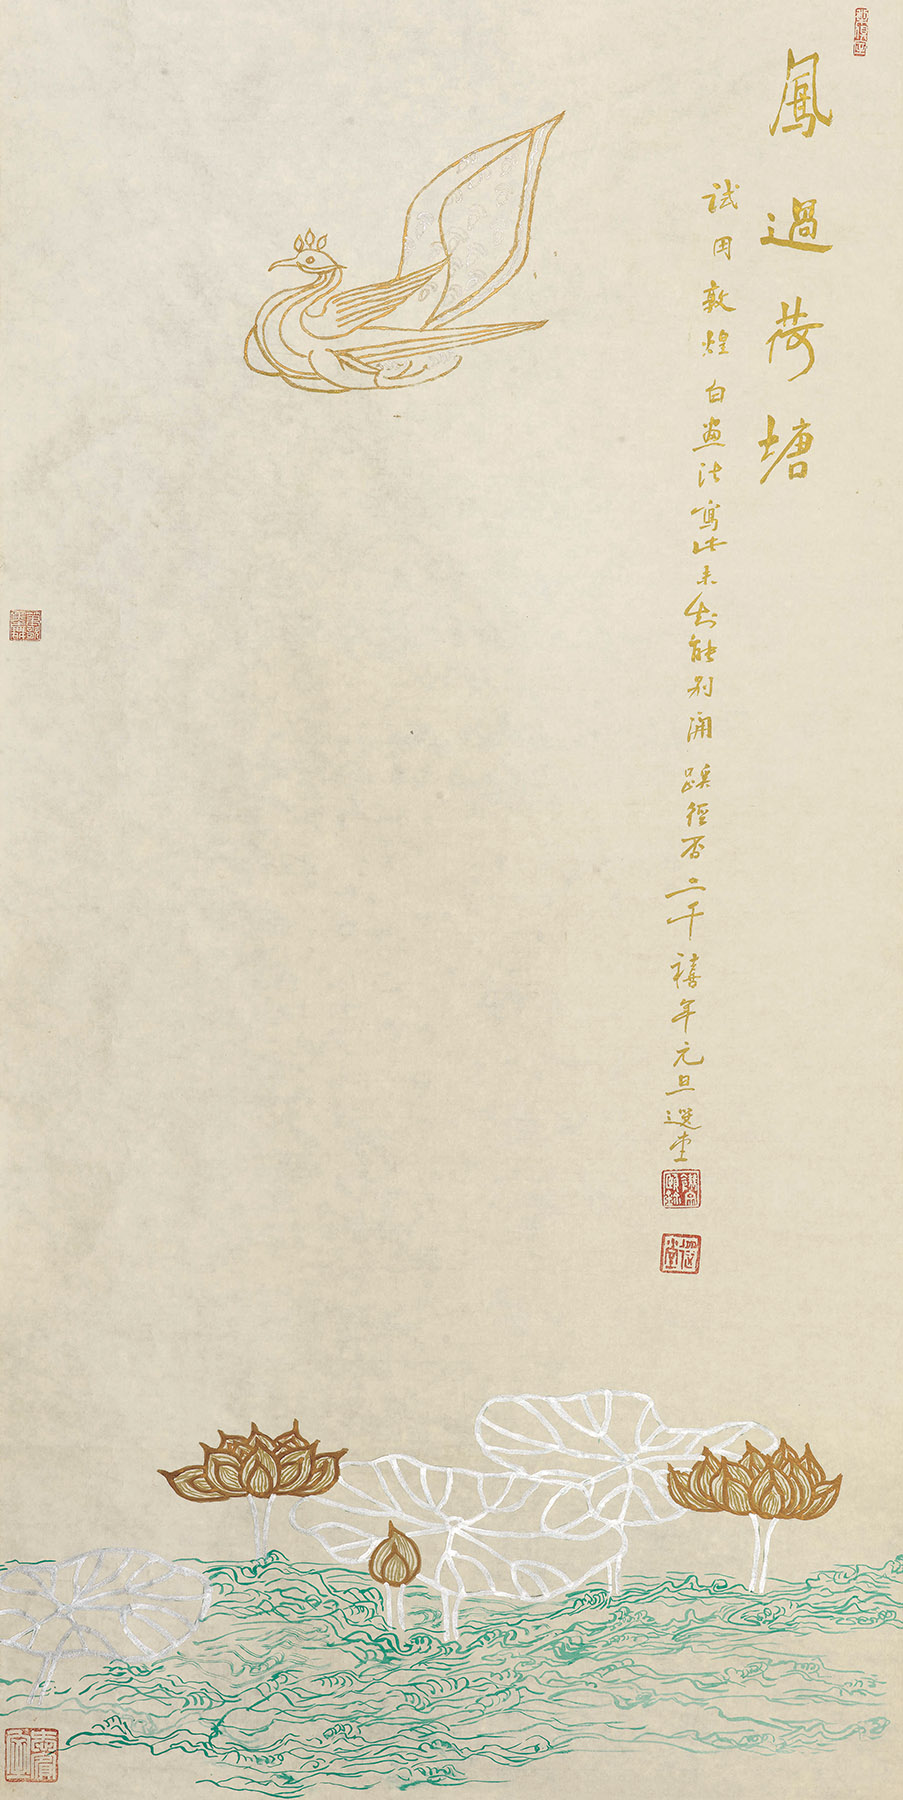 鳳過荷塘
試用敦煌白畫法寫此未知能別開蹊徑否二千禧年元旦選堂
饒宗頤鉨
選堂